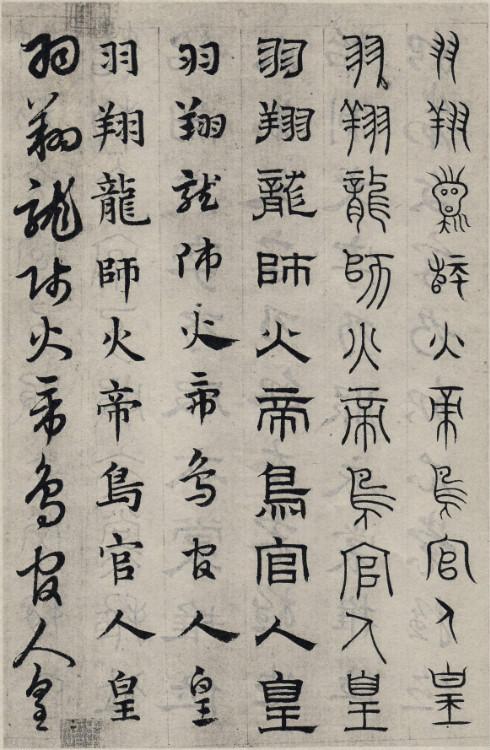 羽翔龍師火帝鳥官人皇
羽翔龍師火帝鳥官人皇
羽翔龍師火帝鳥官人皇
羽翔龍師火帝鳥官人皇
羽翔龍師火帝鳥官人皇
羽翔龍師火帝鳥官人皇